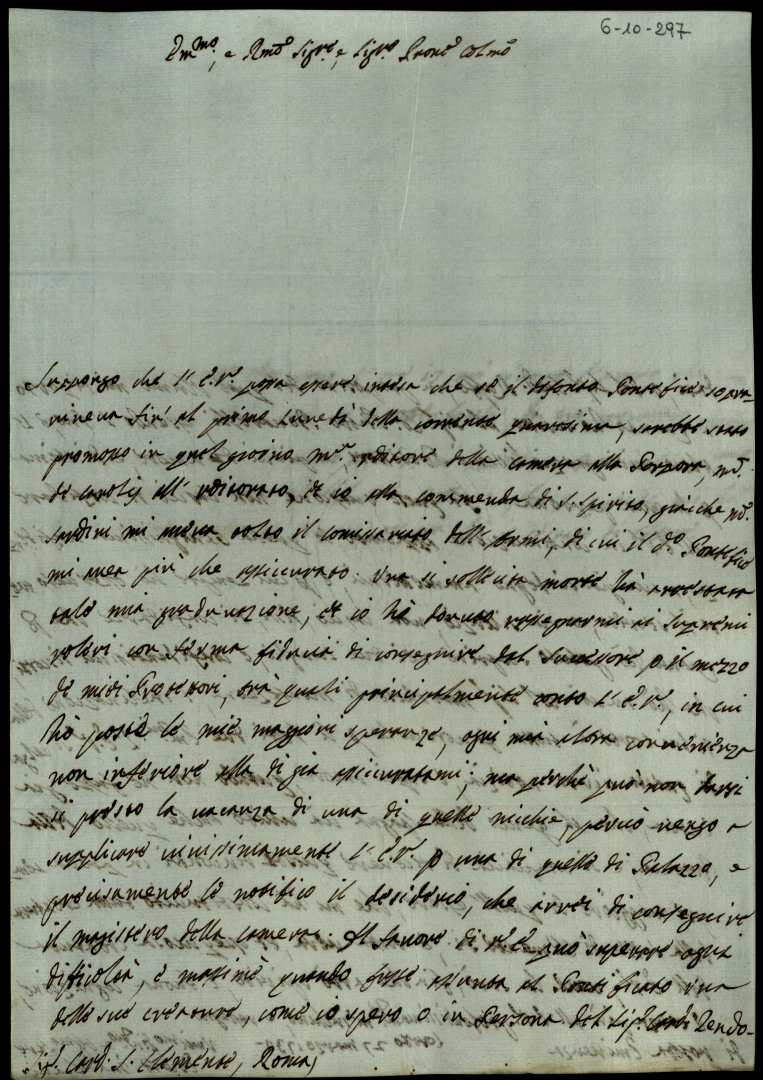 6-10-297
Em.mo, e R.mo Sig.re, e Sig.re Prone Colmo
Suppongo che l'E.V. possa essere intesa che se il defonto Pontefice sopra-
viveva sin' al primo lunedì della corrente quaresima, sarebbe stato
promosso in quel giorno m.r uditore della camera alla Porpora, m.r
de Carolis all' uditorato, et io alla commenda di S. Spirito, giacche m.r
Sardini mi aveva tolto il comissariato dell' armi, di cui il d.o Pontefice
mi avea più che assicurato. Una sì sollecita morte hà arrestata
tale mia graduazione, et io hò dovuto rassegnarmi ai supremi
voleri con ferma fiducia di conseguire dal successore p il mezzo
de miei Protettori, trà quali principalmente conto l'E.V., in cui
hò poste le mie maggiori speranze, ogni mia altra convenienza
non inferiore alla di già assicuratami; ma perchè può non darsi
sì presto la vacanza di una di quelle nicchie, perciò vengo a
supplicare vivissimamente l'E.V. p una di quelle di Palazzo, e
precisamente le notifico il desiderio, che avrei di conseguire
il magistero della camera. Il favore di V.E. può superare ogni
difficoltà, e massime quando fosse assunta al Pontificato una
delle sue creature, come io spero o in Persona del Sig.r Card.e Zondo-
Sig.r Card. S. Clemente, Roma